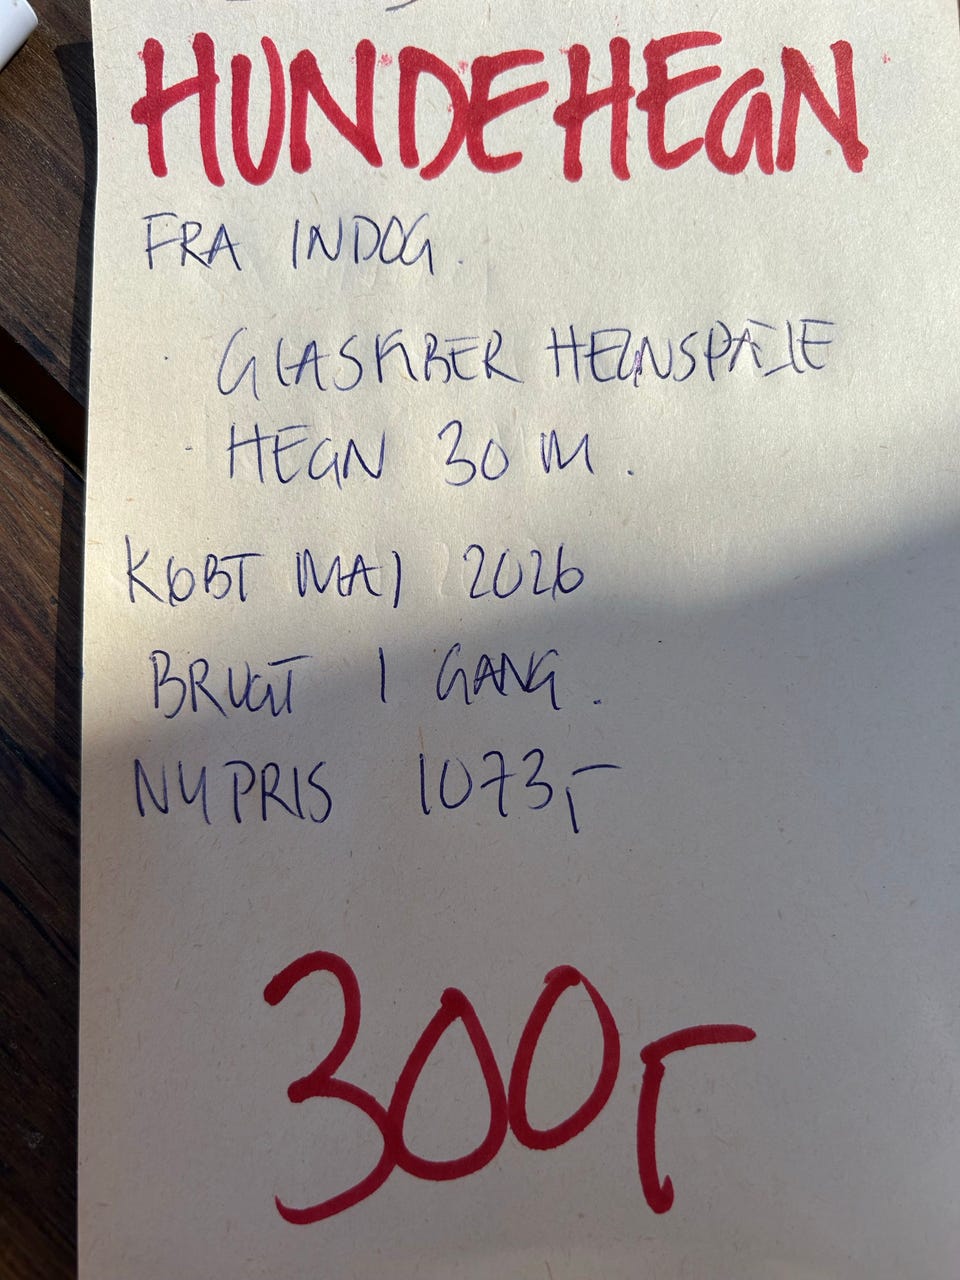 HUNDEHEGN
FRA INDOG.
· GLASFIBER HEGNSPÆLE
· HEGN 30 M.
KØBT MAJ 2026
BRUGT 1 GANG.
NYPRIS 1073,-
300,-